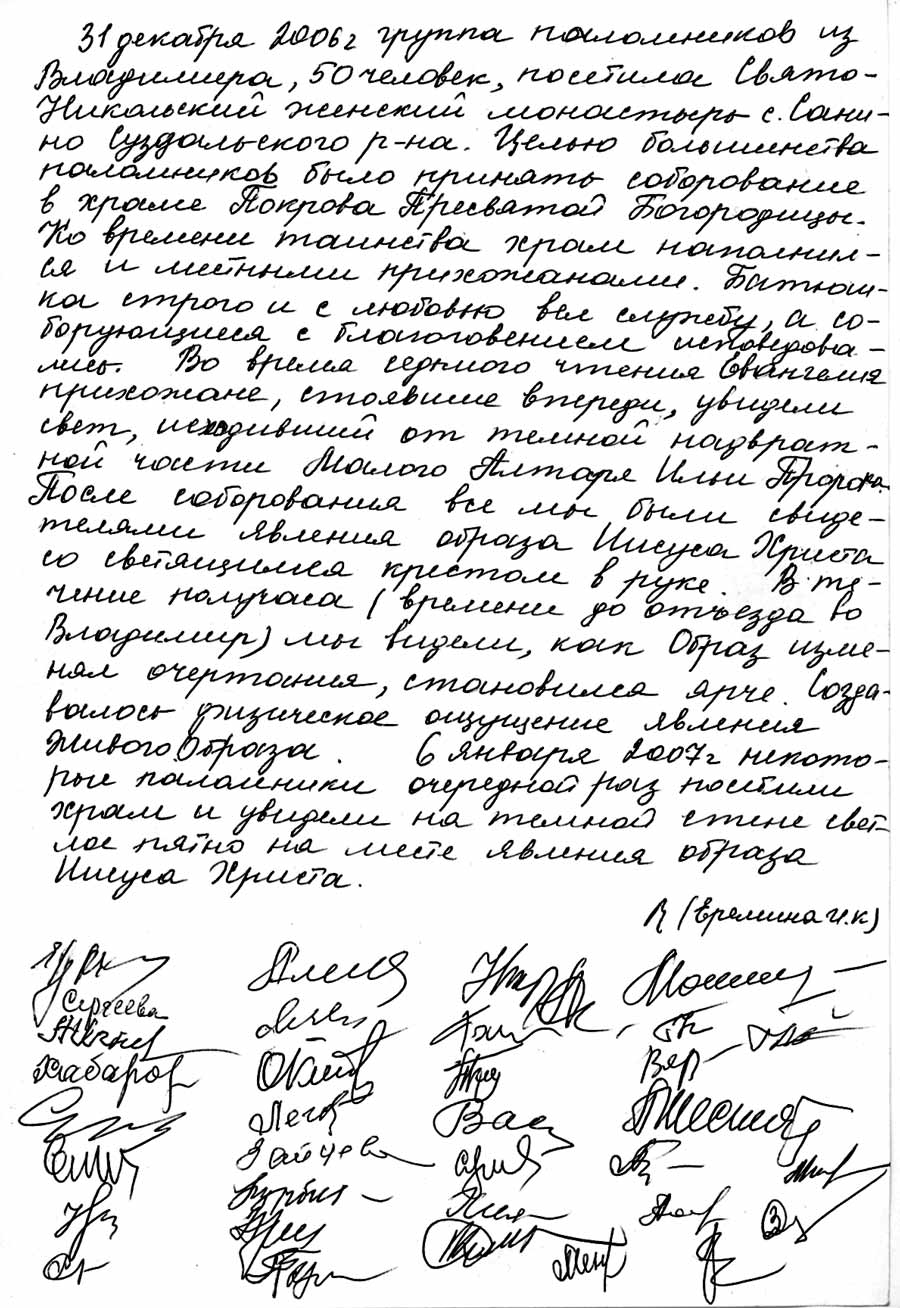 31 декабря 2006г группа паломников из
Владимира, 50 человек, посетила Свято-
Никольский женский монастырь с. Сани-
но Суздальского р-на. Целью большинства
паломников было принять соборование
в храме Покрова Пресвятой Богородицы.
Ко времени таинства храм наполнил-
ся и местными прихожанами. Батюш-
ка строго и с любовью вел службу, а со-
борующиеся с благоговением исповедова-
лись. Во время седьмого чтения Евангелия
прихожане, стоявшие впереди, увидели
свет, исходивший от темной надврат-
ной части Малого Алтаря Ильи Пророка.
После соборования все мы были свиде-
телями явления образа Иисуса Христа
со светящимся крестом в руке. В те-
чение получаса (времени до отъезда во
Владимир) мы видели, как Образ изме-
нял очертания, становился ярче. Созда-
валось физическое ощущение явления
Живого Образа. 6 января 2007г некото-
рые паломники очередной раз посетили
храм и увидели на темной стене свет-
лое пятно на месте явления образа
Иисуса Христа.
(Еремина И.К)
Сергеева
Хабаров
Вас
Зайцева